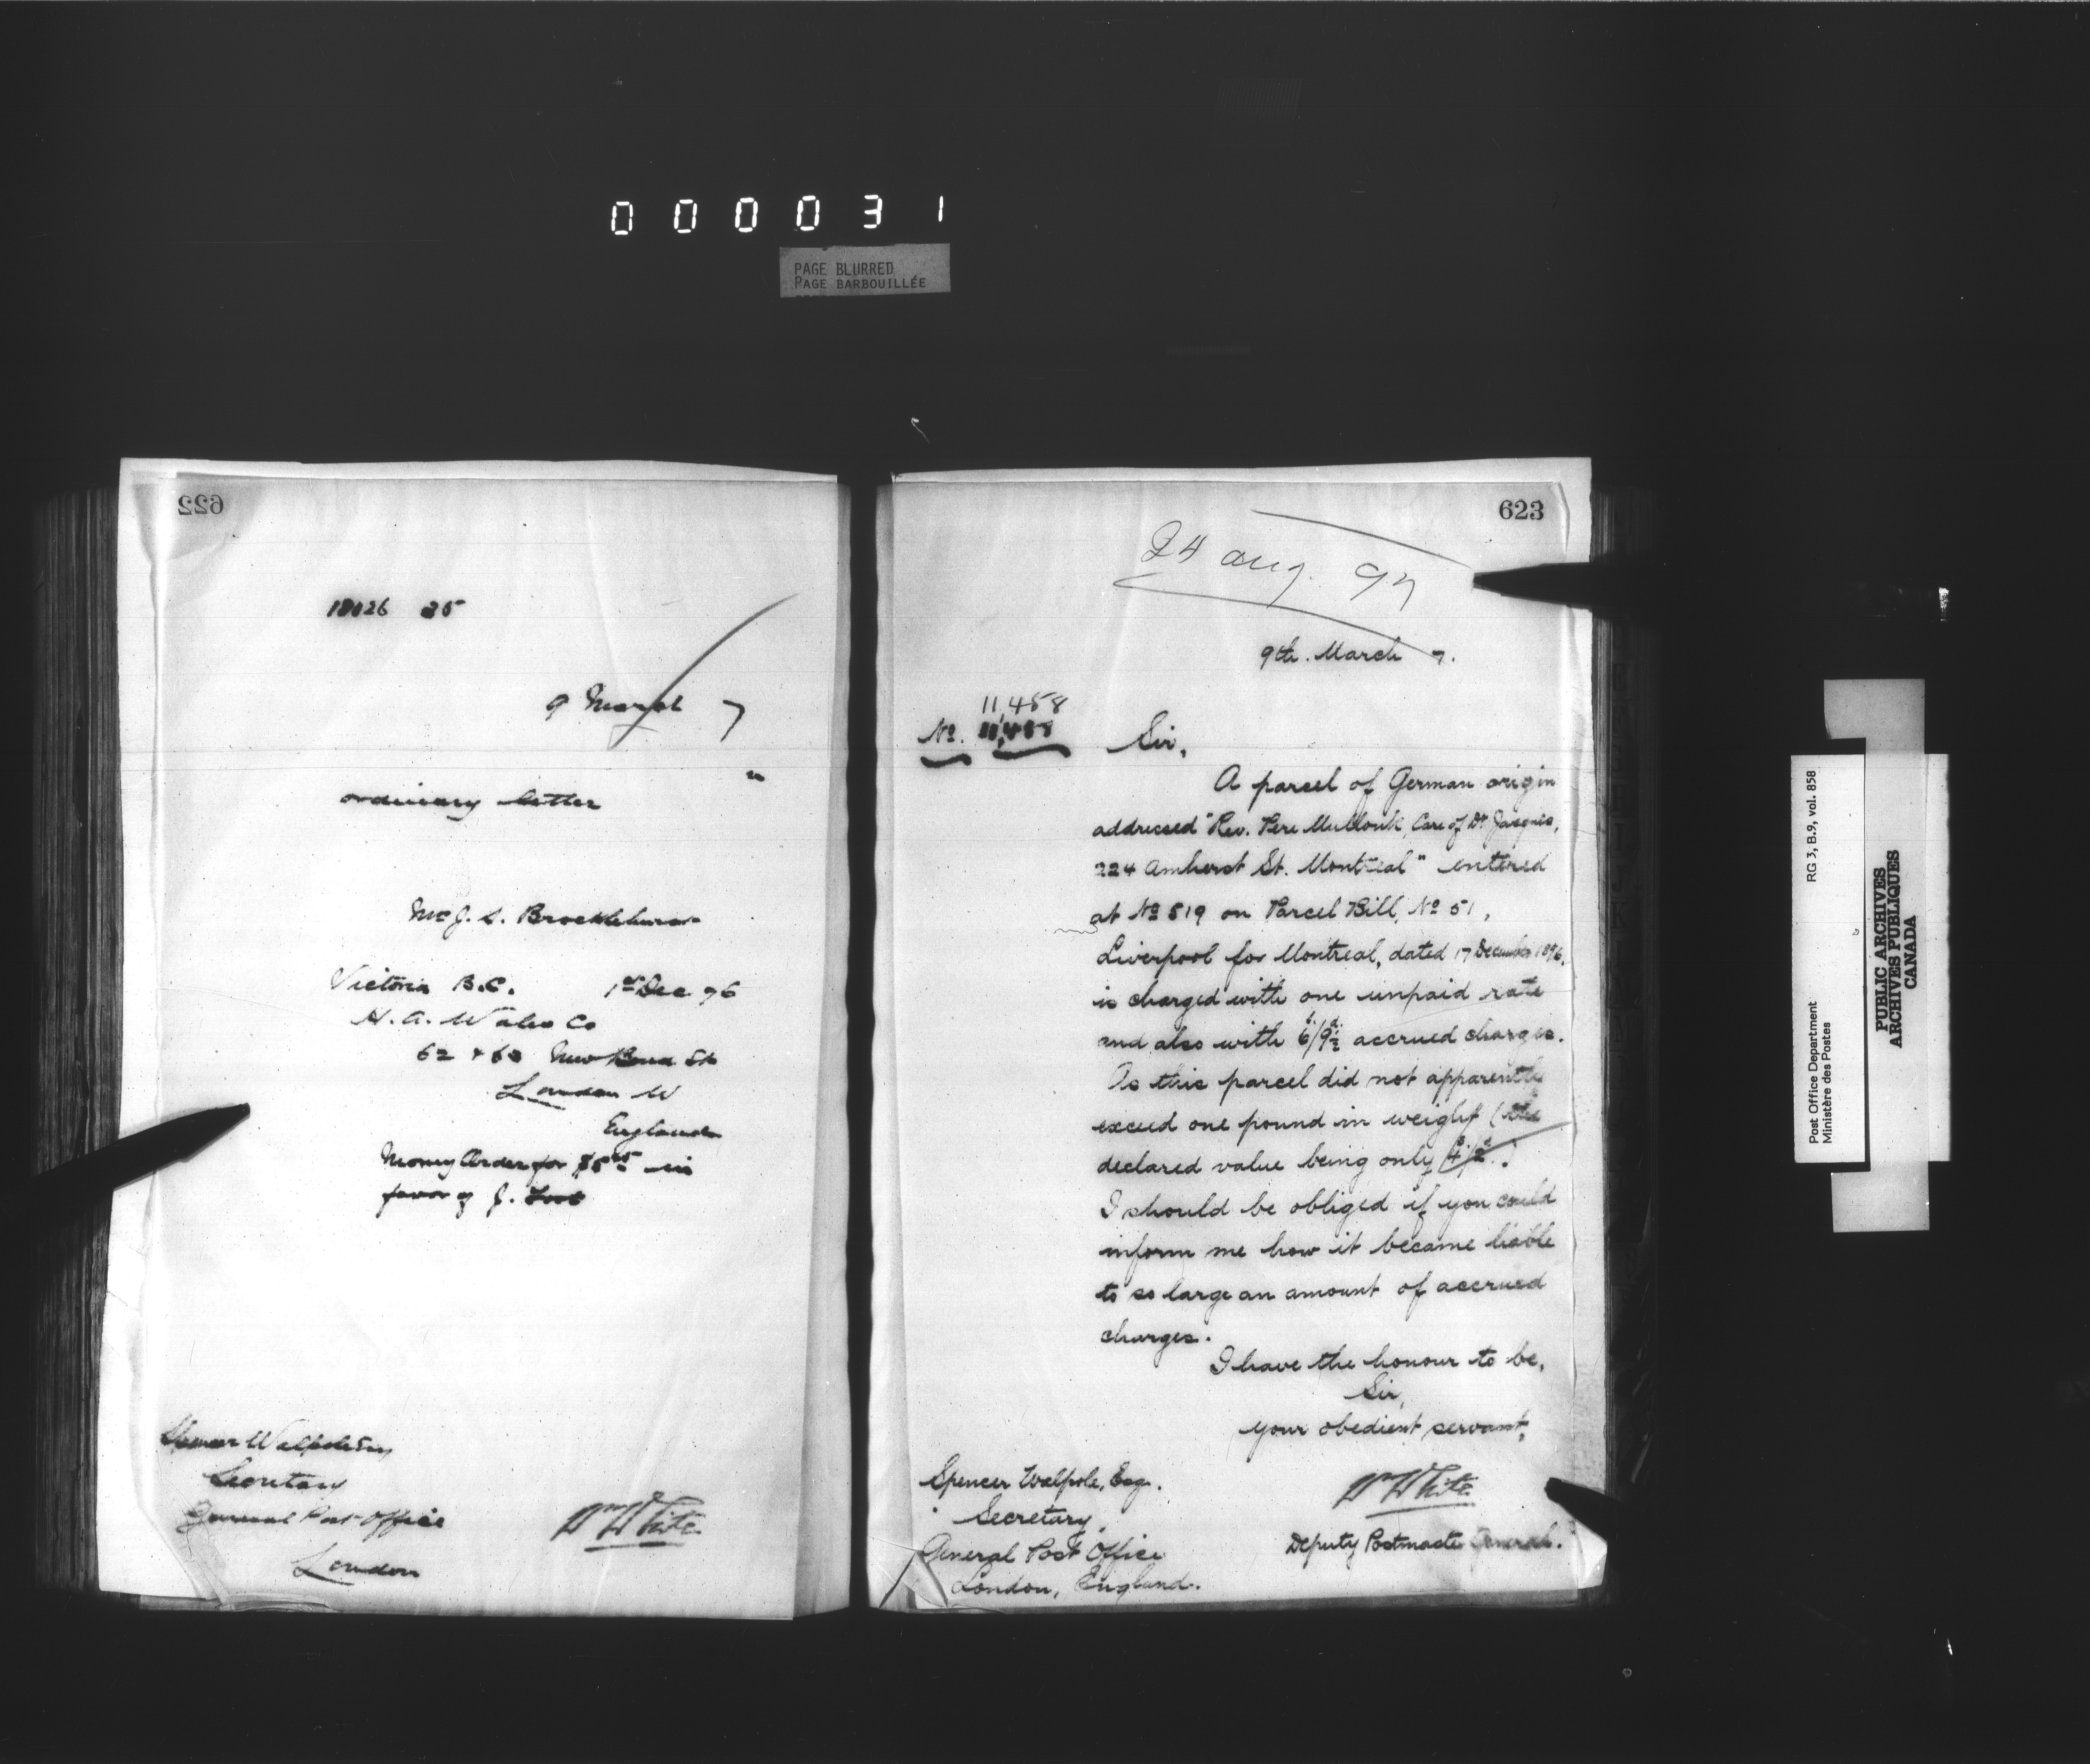 000031
PAGE BLURRED
PAGE BARBOUILLÉE
622
25
9 March 7
ordinary letter
Mr J. S. Brocklehurst
Victoria B.C. 1st Dec 96
H. A. Wales Co
62 & 63 New Bond St
London W
England
Money Order for $5 in
favor of J.
Spencer Walpole Esq
Secretary
General Post Office
London
Wm White
623
24 Aug. 97
9th. March 7.
11,458
No. 11,458
Sir,
A parcel of German origin
addressed "Rev. Pere Care of Dr. Jacques,
224 Amherst St. Montreal" entered
at No 519 on Parcel Bill, No 51,
Liverpool for Montreal, dated 17 December 1896,
is charged with one unpaid rate
and also with 6s./9½d. accrued charges.
As this parcel did not apparently
exceed one pound in weight (the
declared value being only 4s./2d.)
I should be obliged if you could
inform me how it became liable
to so large an amount of accrued
charges.
I have the honour to be,
Sir,
your obedient servant,
Wm White
Deputy Postmaster General.
Spencer Walpole, Esq.
Secretary,
General Post Office
London, England.
Post Office Department
Ministère des Postes
RG 3, B.9, vol. 858
PUBLIC ARCHIVES
ARCHIVES PUBLIQUES
CANADA